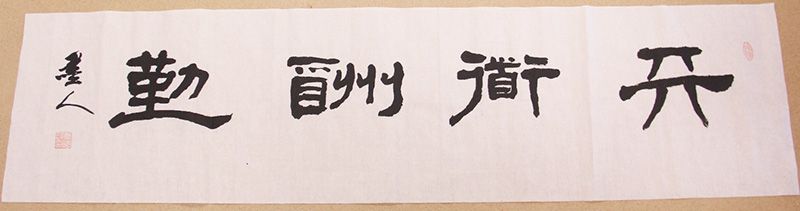 天道酬勤
墨人